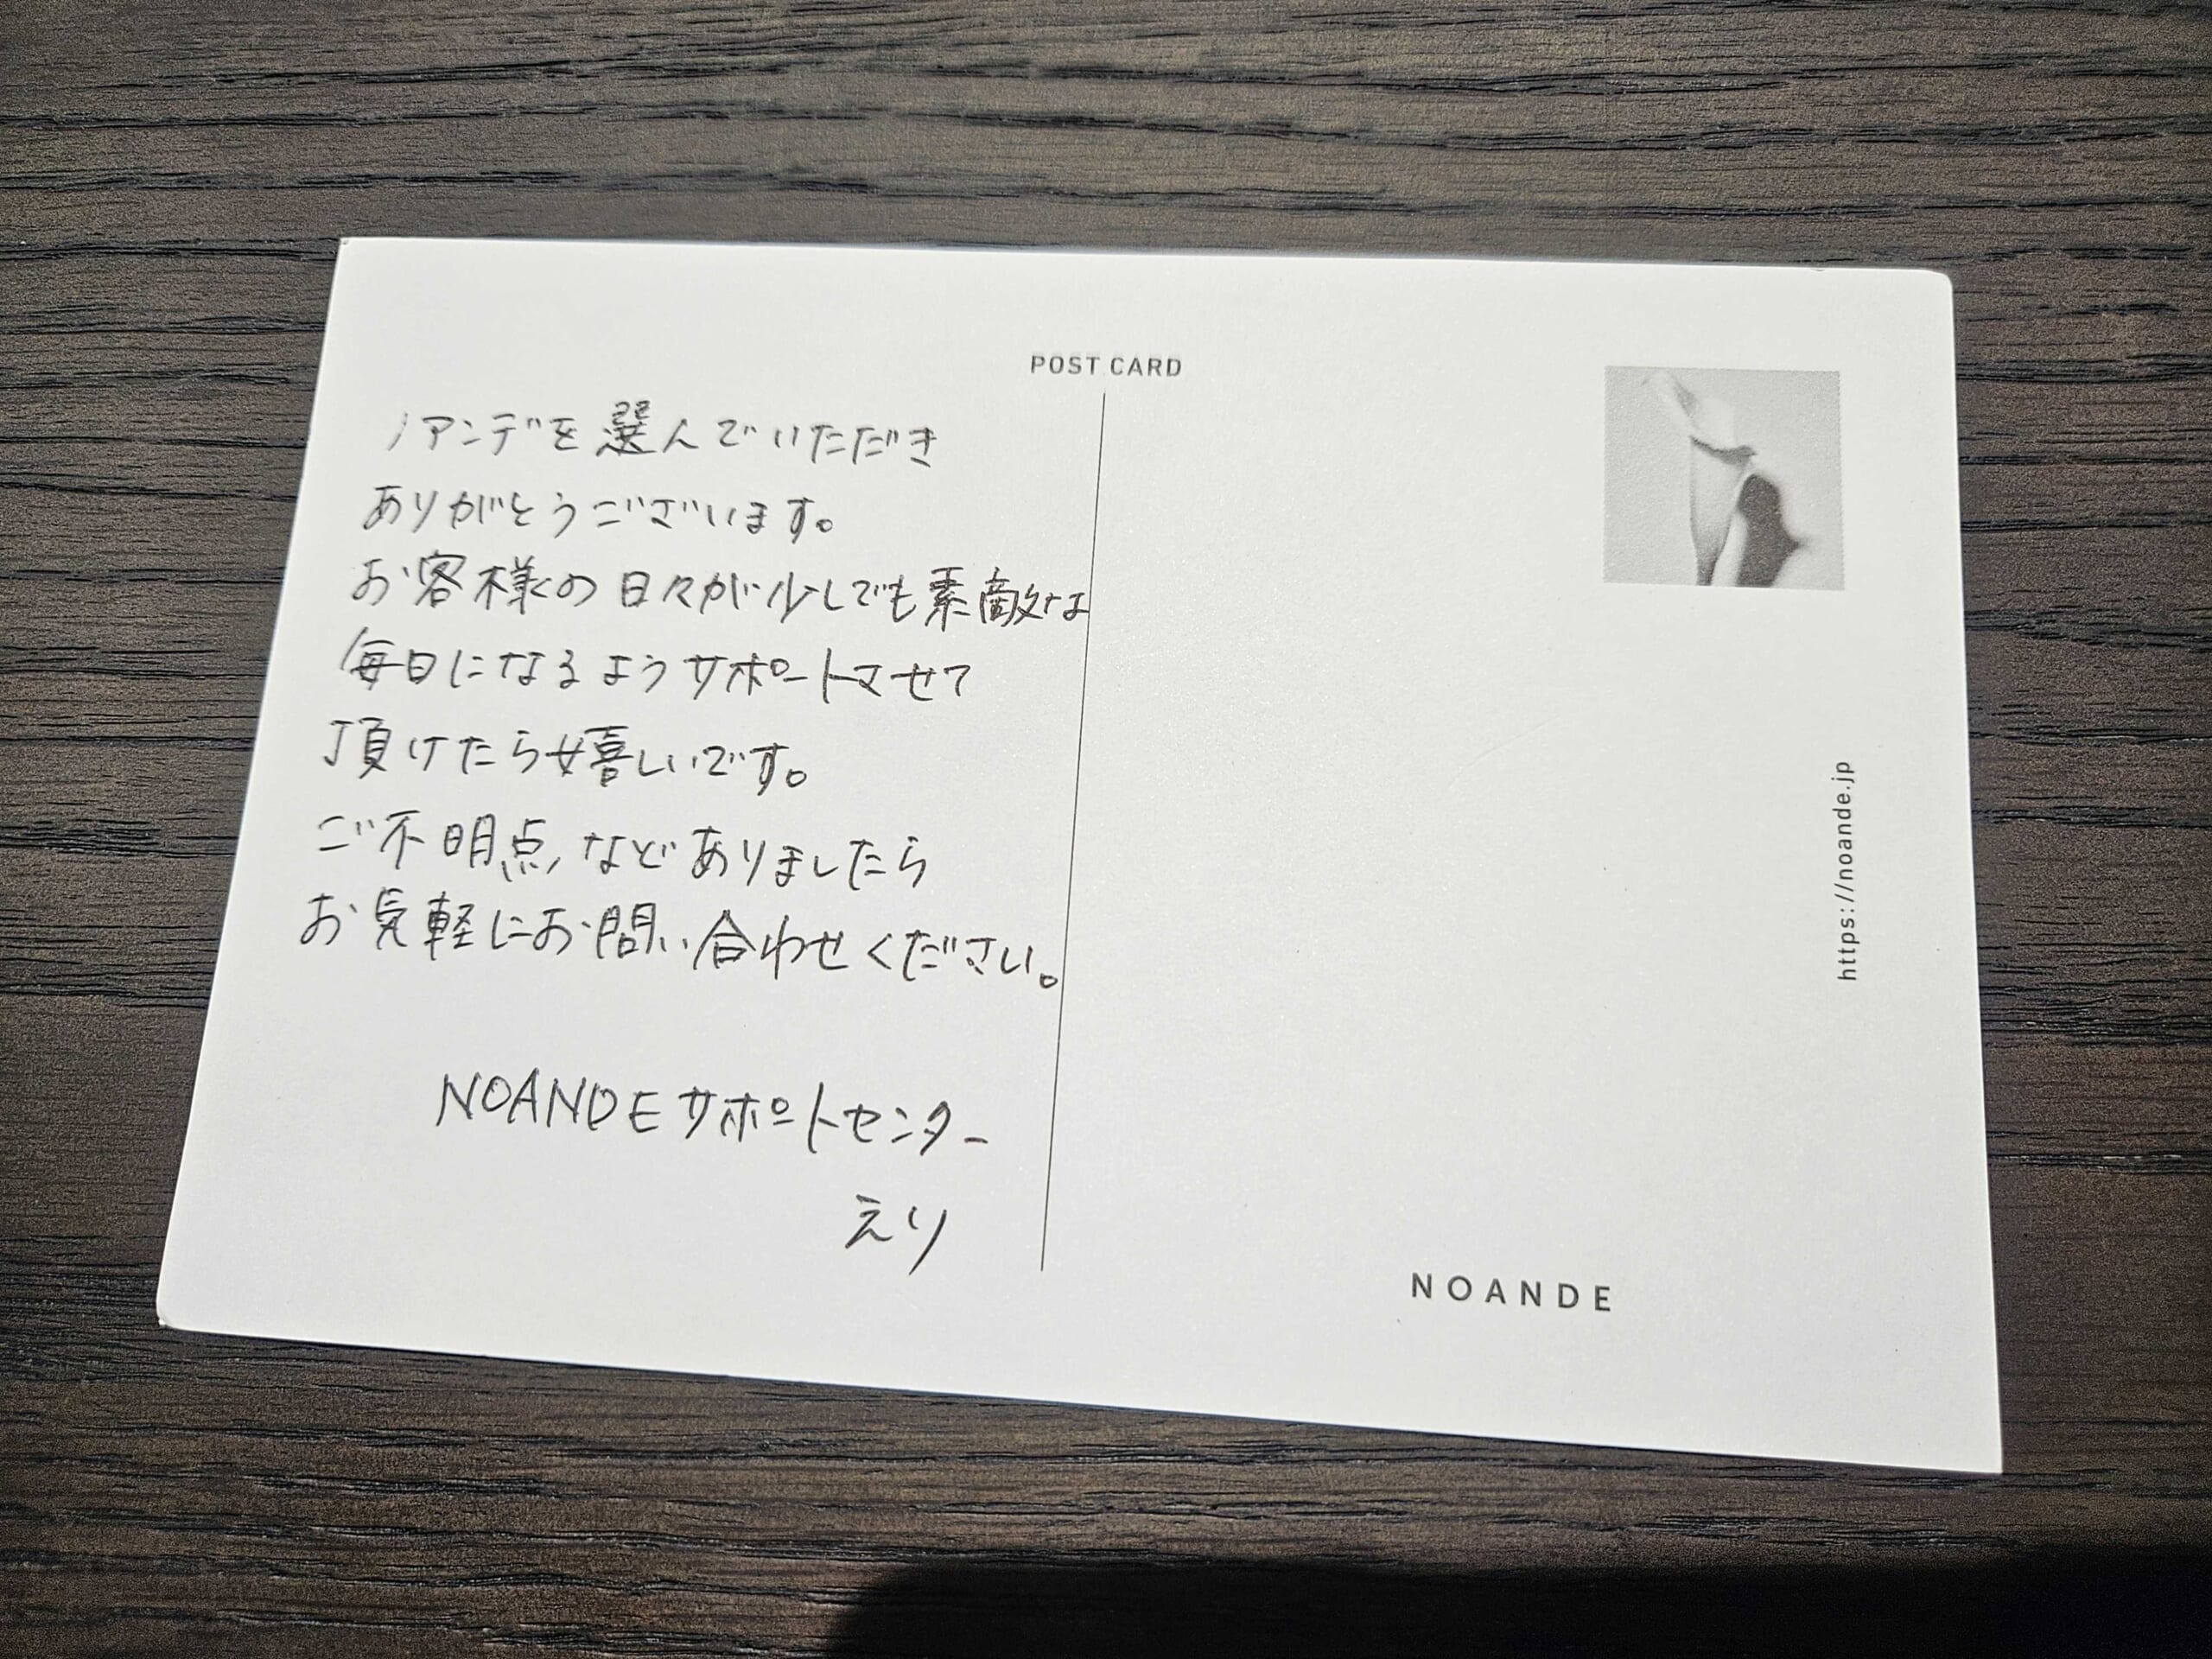 POST CARD
ノアンデを選んでいただき
ありがとうございます。
お客様の日々が少しでも素敵な
毎日になるようサポートさせて
頂けたら嬉しいです。
ご不明点などありましたら
お気軽にお問い合わせください。
NOANDEサポートセンター
えり
https://noande.jp
NOANDE